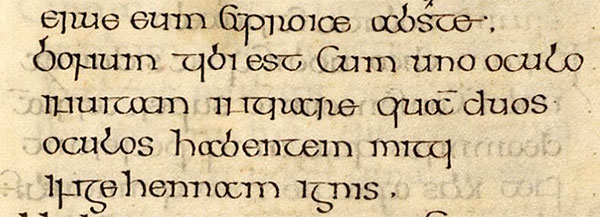 erue eum & proice abste·
bonum tibi est Cum uno oculo
inuitam intrare quā duos
oculos habentem mitti
ingehennam ignis.